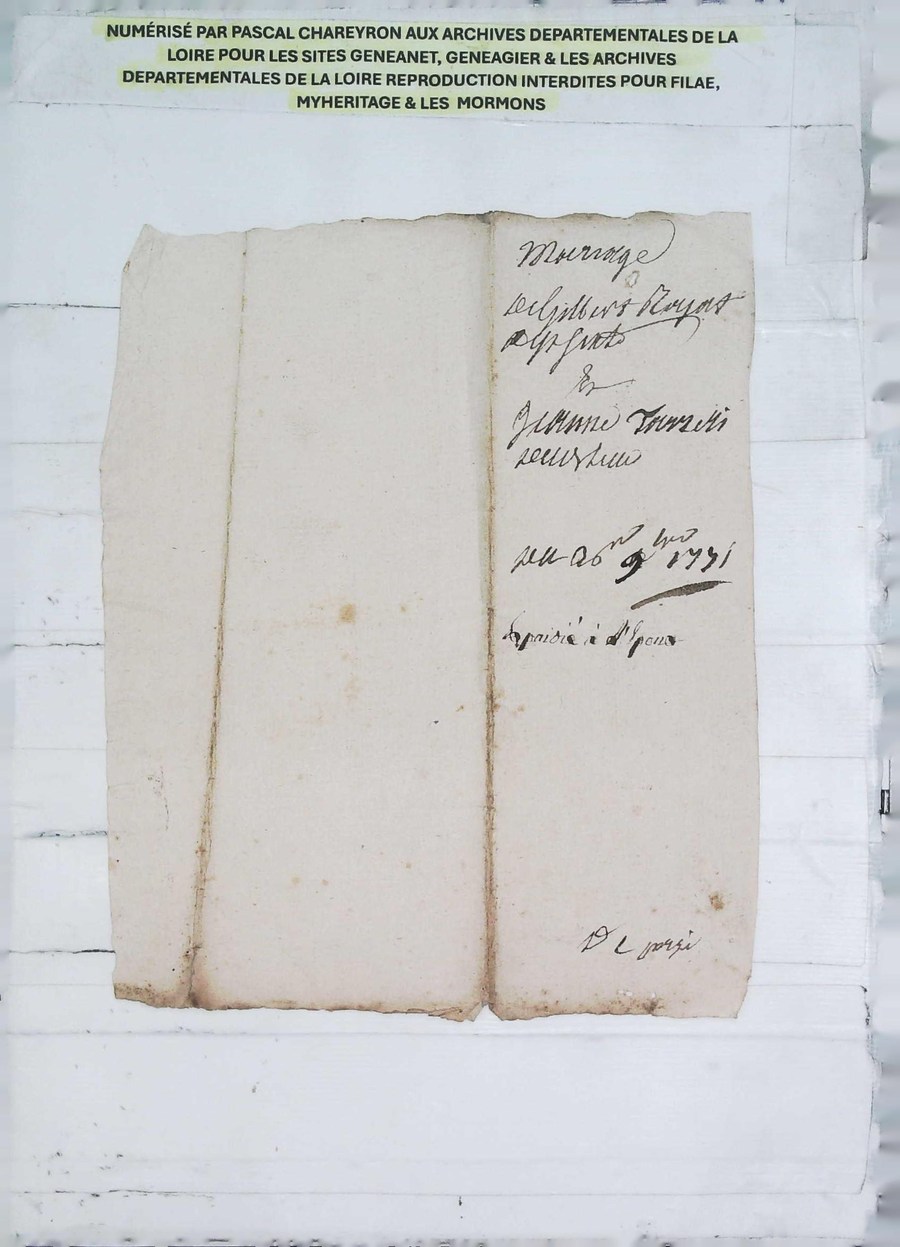 NUMÉRISÉ PAR PASCAL CHAREYRON AUX ARCHIVES DEPARTEMENTALES DE LA
LOIRE POUR LES SITES GENEANET, GENEAGIER & LES ARCHIVES
DEPARTEMENTALES DE LA LOIRE REPRODUCTION INTERDITES POUR FILAE,
MYHERITAGE & LES MORMONS
Marriage
de Gilbert
Et
Jeanne
du 26 9bre 1771
Expedié à l'Epoux